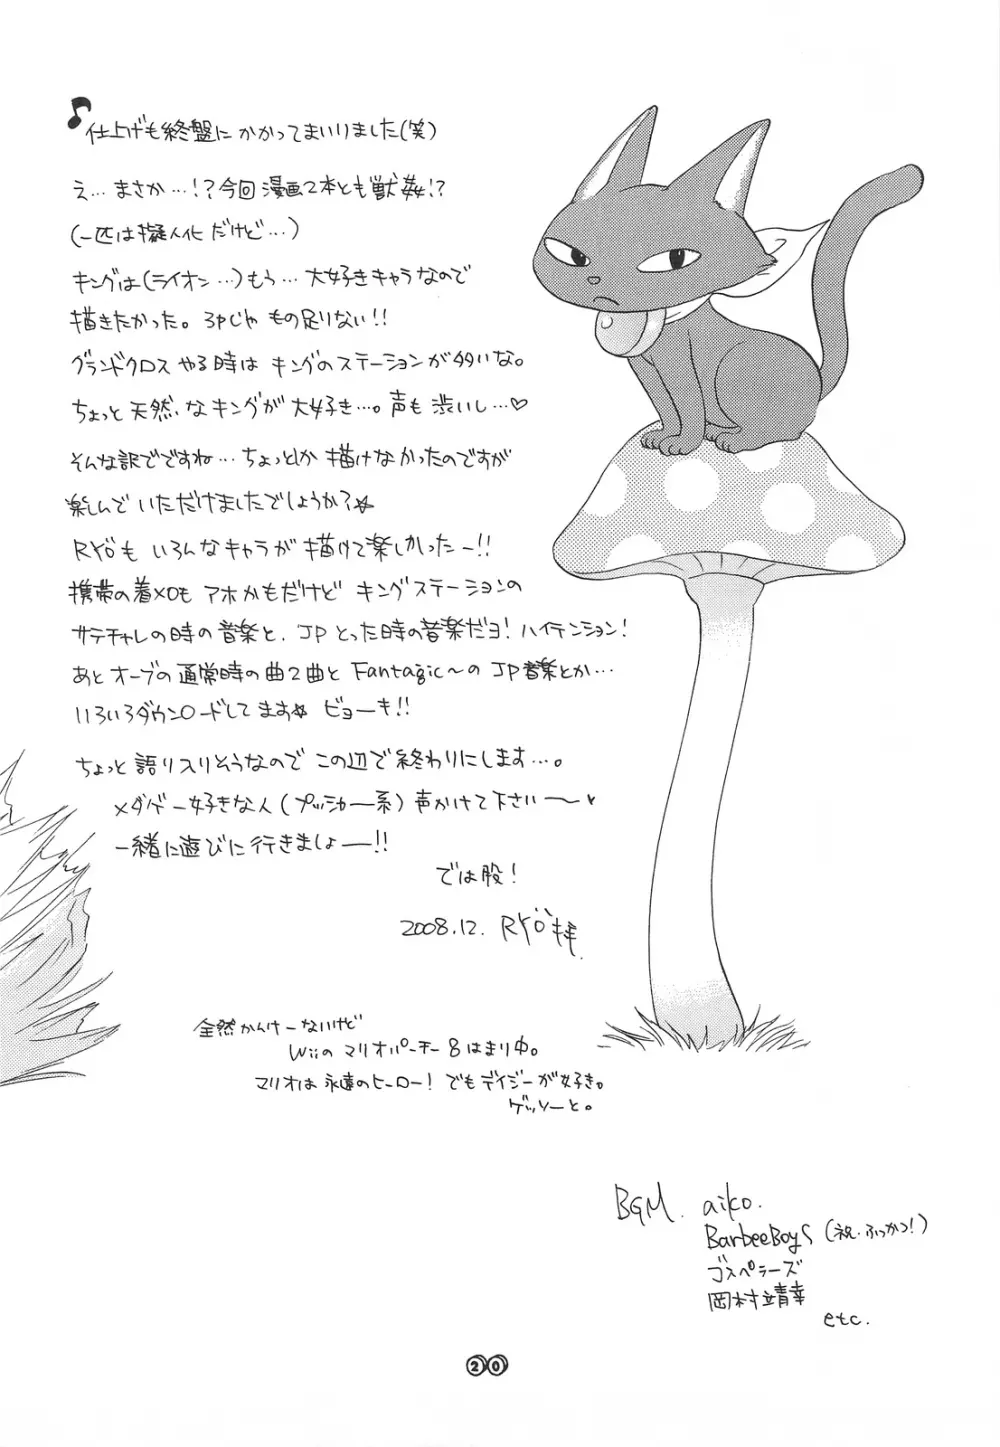 仕上げも終盤にかかってまいりました(笑)
え…まさか…!?今回漫画2本とも獣姦!?
(一匹は擬人化だけど…)
キングは(ライオン…)もう…大好きキャラなので
描きたかった。3Pじゃもの足りない!!
グランドクロスやる時はキングのステーションが多いな。
ちょっと天然なキングが大好き…。声も渋いし…♡
そんな訳でですね…ちょっとしか描けなかったのですが
楽しんでいただけましたでしょうか?☆
RYÖもいろんなキャラが描けて楽しかったー!!
携帯の着メロもアホかもだけどキングステーションの
サテチャレの時の音楽と、JPとった時の音楽だヨ!ハイテンション!
あとオーブの通常時の曲2曲とFantagic〜のJP音楽とか…
いろいろダウンロードしてます☆ビョーキ!!
ちょっと語り入りそうなのでこの辺で終わりにします…。
メダゲー好きな人(プッシャー系)声かけて下さい〜♥
一緒に遊びに行きましょー!!
では股!
2008.12. RYÖ拝
全然かんけーないけど
Wiiのマリオパーチー8はまり中。
マリオは永遠のヒーロー!でもデイジーが好き。
ゲッソーと。
BGM. aiko.
BarbeeBoys(祝・ふっかつ!)
ゴスペラーズ
岡村靖幸
etc.
20